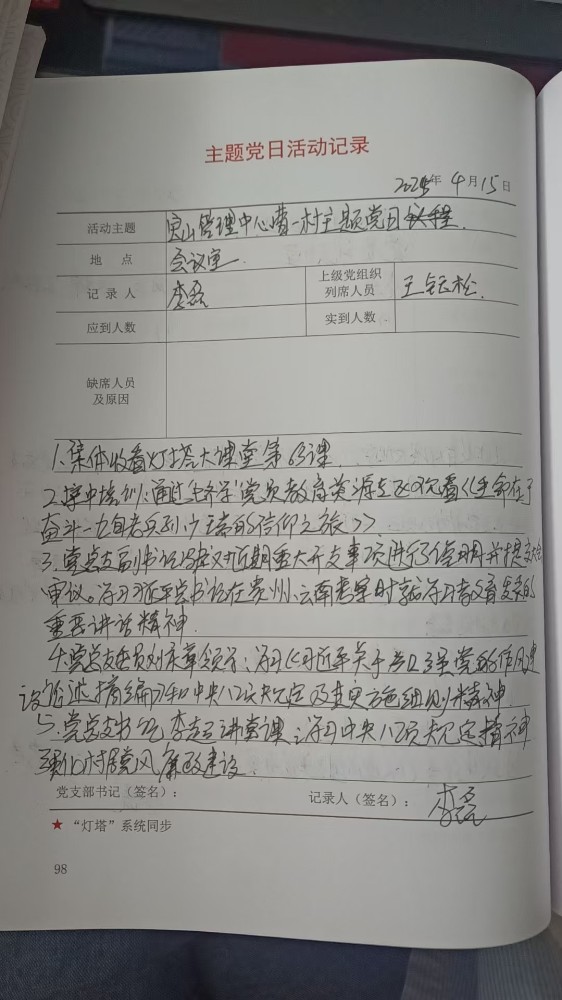 主题党日活动记录
年 4 月 15 日
活动主题 管理中心 一村主题党日议程
地 点 会议室
记 录 人 李磊 上级党组织列席人员 王 松
应到人数 实到人数
缺席人员及原因
1、集体收看灯塔大课堂第63课
2、集中培训：通过 党员教育资源 观看《生命在于
奋斗— 老兵 的信仰之旅》
3、党总支副书记 对近期重大开支事项进行了 明并提交大会
审议。学习习近平总书记在贵州、云南考察时 发表的
重要讲话精神
4、党总支委员刘 领学：学习《习近平关于 党的作风建
设论述摘编》和中央八项规定及其实施细则精神
5、党总支书记李 讲党课：学习中央八项规定精神
强化村居党风廉政建设
党支部书记（签名）： 记录人（签名）： 李磊
★ “灯塔”系统同步
98